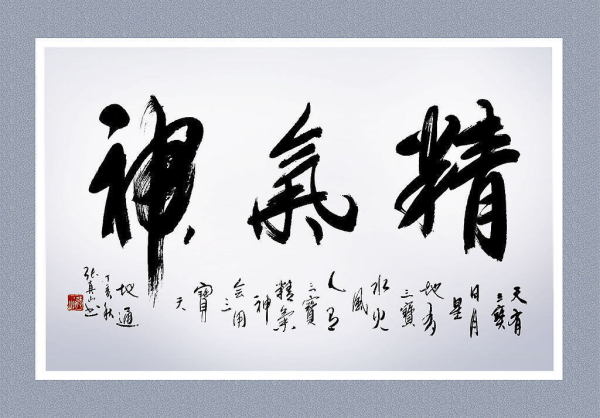 精氣神
天有
三寶
日月
星
地有
三寶
水火
風
人有
三寶
精氣
神
会用
三
寶
天
地通
丁亥秋